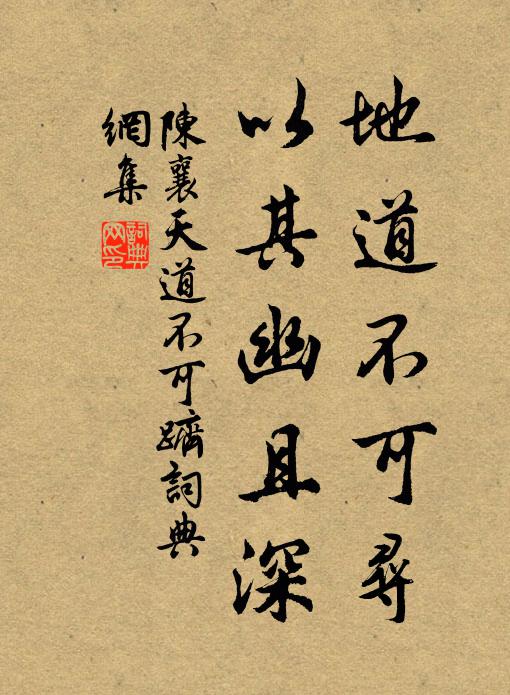 地道不可尋
以其幽且深
陳襄天道不可躋詞典
網集
詞典
网印